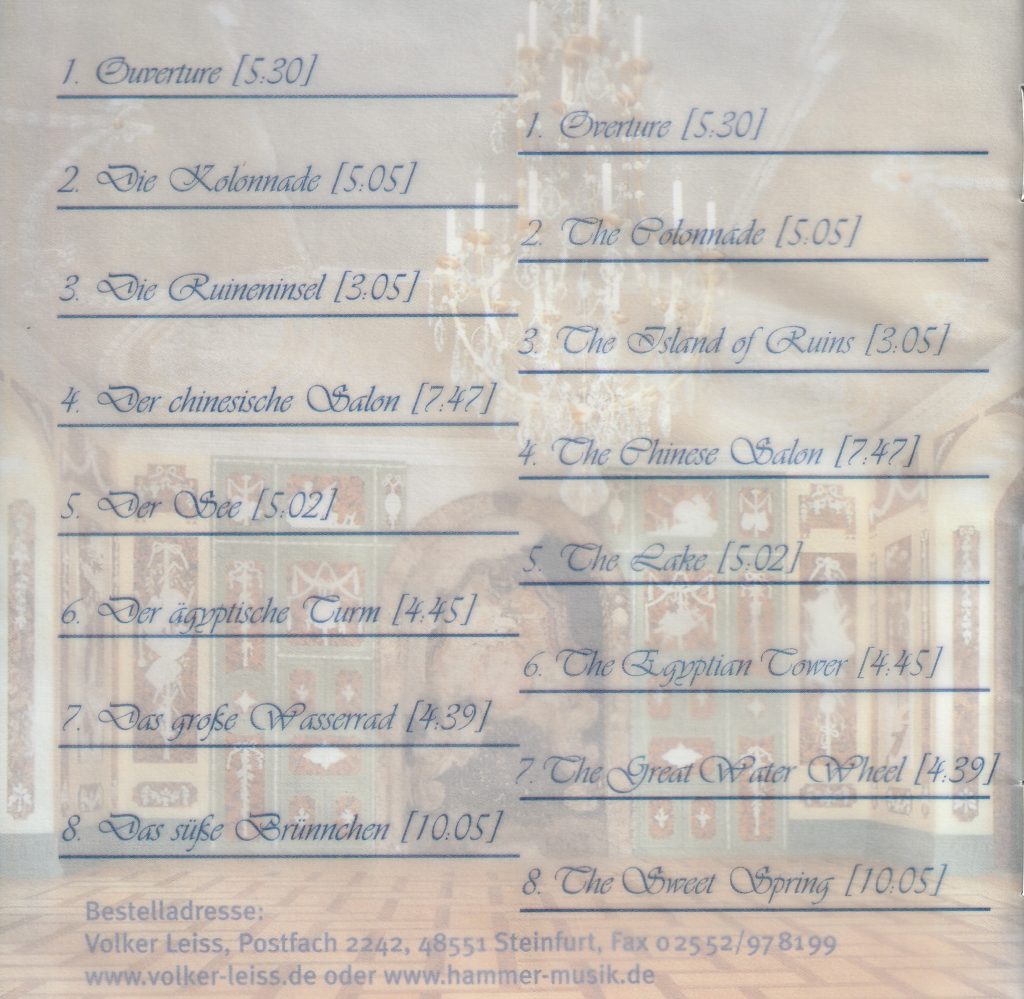 1. Ouverture [5:30]
2. Die Kolonnade [5:05]
3. Die Ruineninsel [3:05]
4. Der chinesische Salon [7:47]
5. Der See [5:02]
6. Der ägyptische Turm [4:45]
7. Das große Wasserrad [4:39]
8. Das süße Brünnchen [10.05]
1. Overture [5:30]
2. The Colonnade [5:05]
3. The Island of Ruins [3:05]
4. The Chinese Salon [7:47]
5. The Lake [5:02]
6. The Egyptian Tower [4:45]
7. The Great Water Wheel [4:39]
8. The Sweet Spring [10:05]
Bestelladresse:
Volker Leiss, Postfach 2242, 48551 Steinfurt, Fax 02552/978199
www.volker-leiss.de oder www.hammer-musik.de